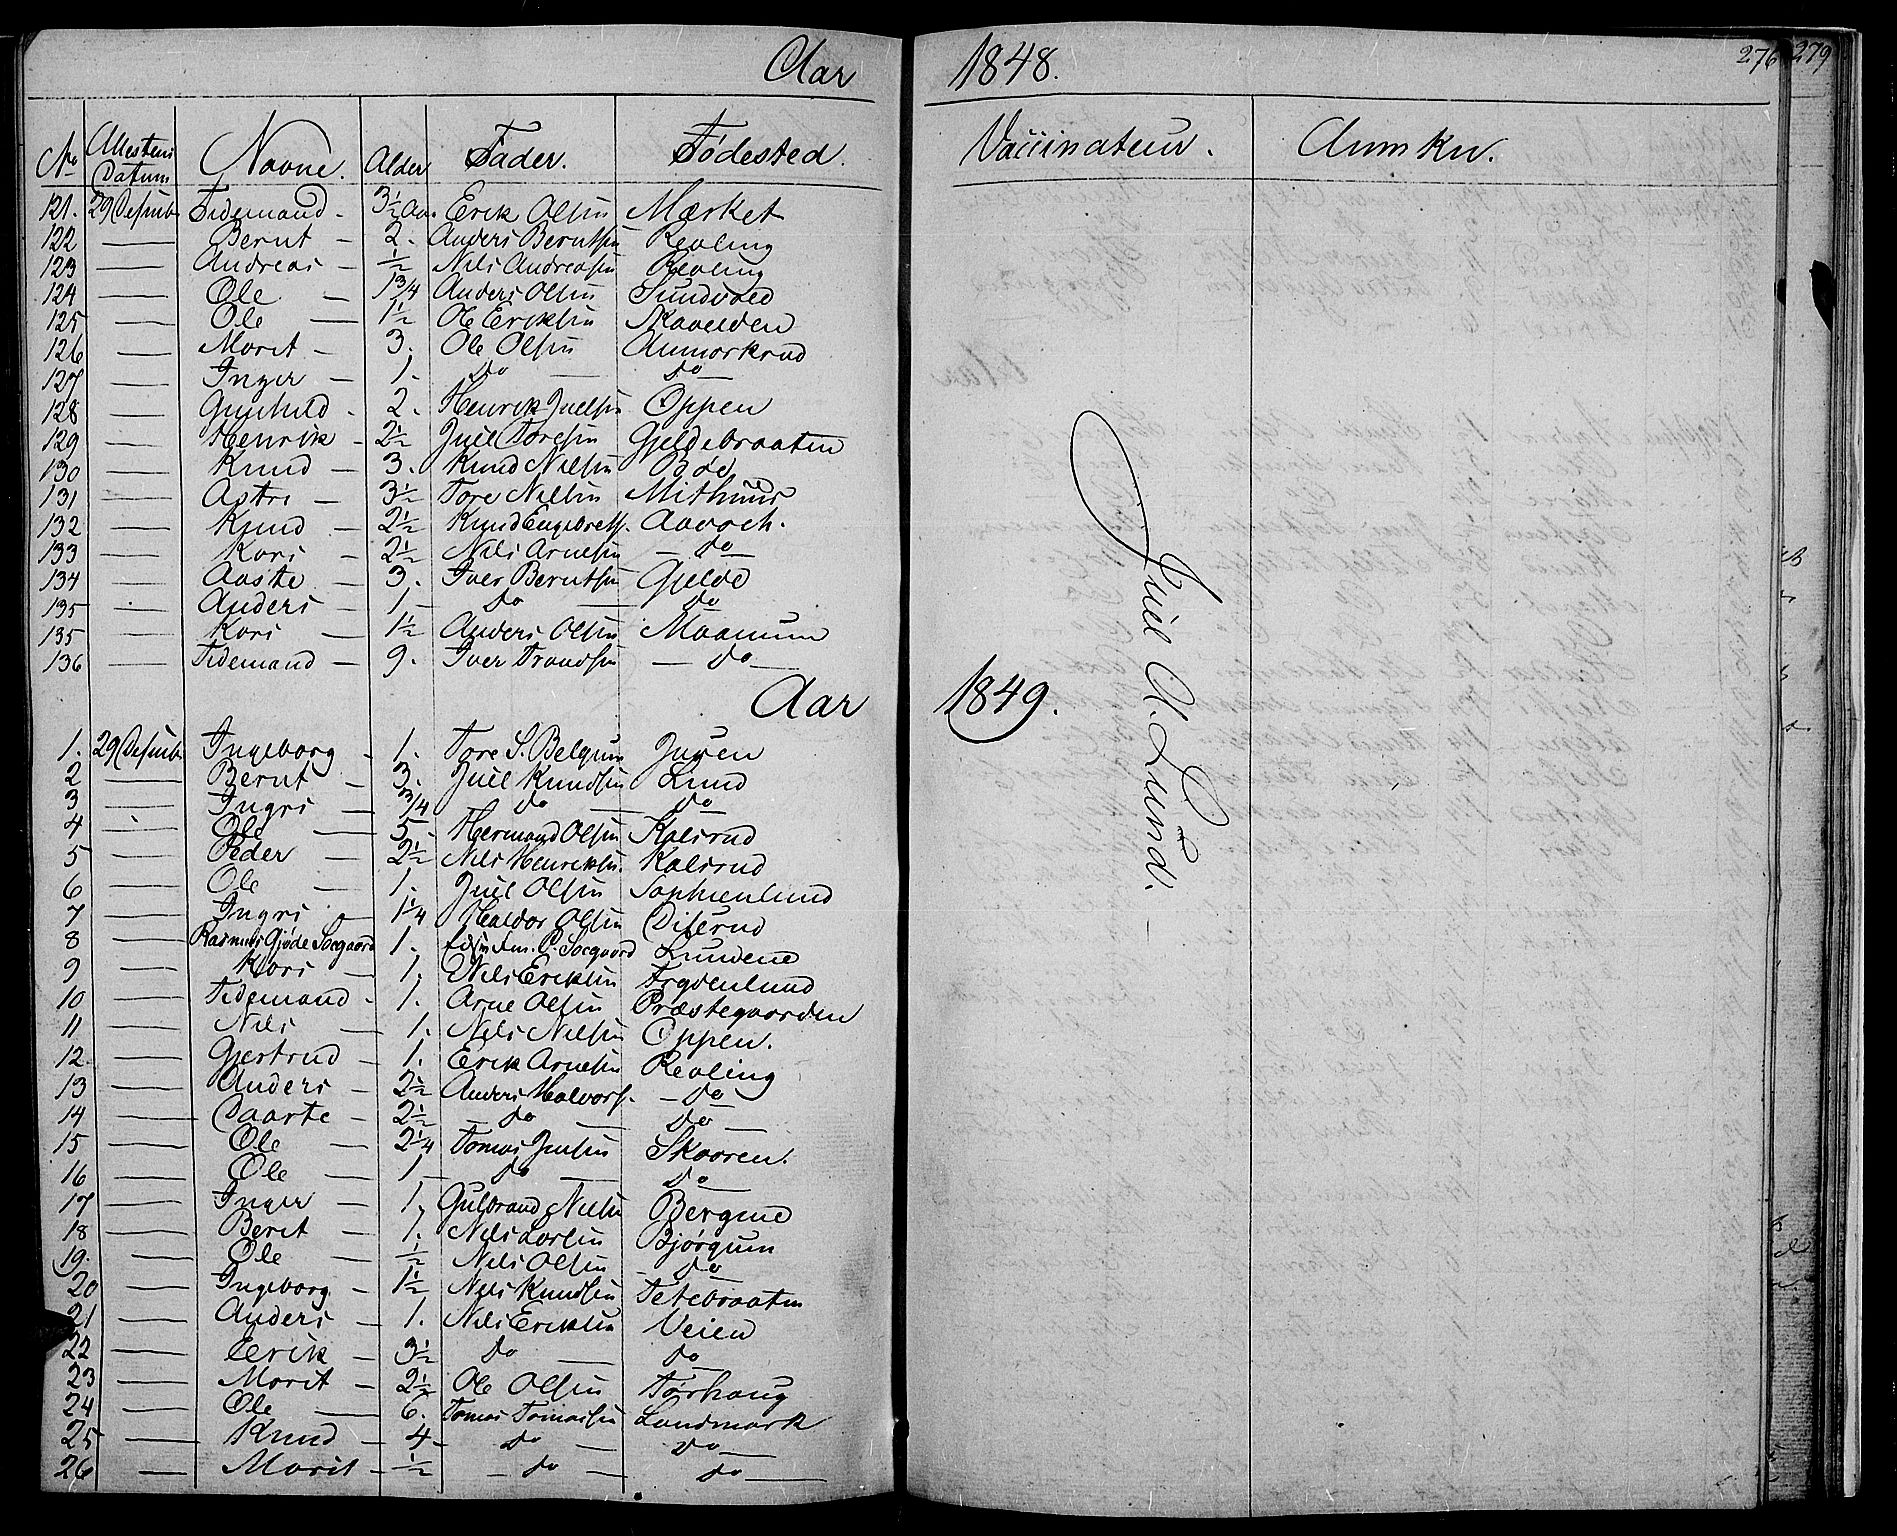 Aar 1848.
276 279
No Attestens Datum Navne. Alder Fader. Fødested. Vaccinateur. Anmkn.
121. 29 Desemb Tidemand - 3½ Aar Erik Olsen Mærket
122 — Bernt - 2. Anders Berntsen Revling
123 — Andreas - ½ Nils Andreasen Revling
124 — Ole — 1¾ Anders Olsen Sundvold
125 — Ole — 1½ Ole Eriksen
126 — Marit - 3. Ole Olsen
127 — Inger - 1. do — do —
128 — Gunhild - 2. Henrik Juelsen Oppen
129 — Henrik - 2½ Juel Toresen Gjeldebraaten
130 — Knud - 3. Knud Nilsen Bøe
131 — Astri - 3½ Tore Nilsen Mithuus
132 — Knud - 2½ Knud Engebrets.
133 — Kari - 2½ Nils Arnesen — do —
134 — Aaste - 3. Iver Berntsen Gjelde
135 — Anders - 1 - do — do
135 — Kari — 1½ Anders Olsen Maanum
136 — Tidemand - 9. Iver Trondsen — do —
Aar 1849.
1. 29 Desemb Ingeborg - 1. Tore S. Belgum Juven
2 — Bernt - 3. Juel Knudsen Lund
3 — Ingri - ¾ do — do
4 — Ole — 5 - Hermand Olsen Kalsrud
5 — Peder — 2½ Nils Henriksen Kalsrud
6 — Ole — 1. Juel Olsen Sophienlund
7 — Ingri - 1¼ Haldor Olsen Diserud
8 — Rasmus Gjøde Soegaard 1. P. Soegaard Lundene
9 — Kari — 1. Nils Eriksen Frydenlund
10 — Tidemand - 1. Arne Olsen Præstegaarden
11 — Nils — 1. Nils Nilsen Oppen.
12. — Gjertrud - 1. Erik Arnesen Revling
13 — Anders - 2½ Anders Halvors. - do -
14 — Aaste - 2½ - do — do —
15 — Ole — 2¼ Tomas Juelsen Skaaren.
16 — Ole — 1 do — do —
17 — Inger — 1. Gulbrand Nilsen Bergene
18 — Berit — 1. Nils Larsen Bjørgum
19. — Ole — ½ Nils Olsen do
20 — Ingeborg - 1½ Nils Knudsen Tetebraaten
21 — Anders - 1. Nils Eriksen Veien
22 — Erik - 3½ do — do
23 — Marit - 2½ Ole Olsen Tørhaug
24 — Ole — 6. Tomas Tomassen Landmark
25 — Knud - 4 - do — do —
26 — Marit - ½ - do — do —
Juel A. Lund. -